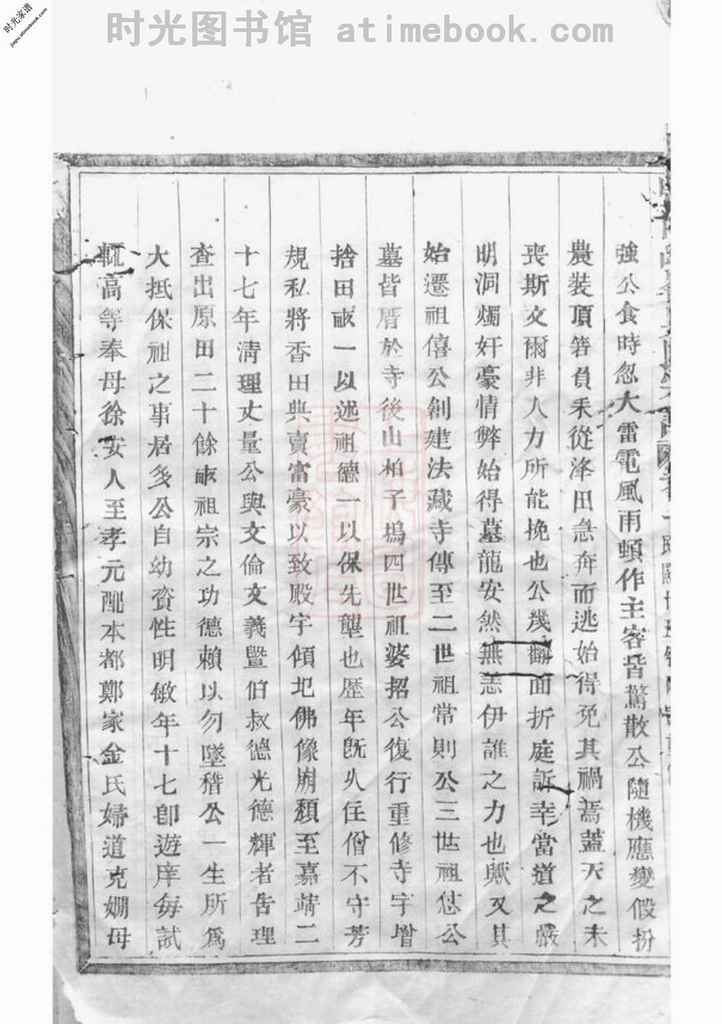 时光图书馆 atimebook.com
时光家谱
jiapu.atimebook.com
強公食時忽大雷電風雨頓作主客皆驚散公隨機應變假扮
農裝頂箬負耒從淤田急奔而逃始得免其禍焉蓋天之未
喪斯文爾非人力所能挽也公幾翻面折庭訴幸當道之嚴
明洞燭奸豪情弊始得墓龍安然無恙伊誰之力也歟又其
始遷祖僖公創建法藏寺傳至二世祖常則公三世祖怤公
墓皆厝於寺後山柏子塢四世祖婆招公復行重修寺宇增
捨田畝一以述祖德一以保先壟也歷年旣久住僧不守芳
規私將香田典賣富豪以致殿宇傾圮佛像崩頹至嘉靖二
十七年清理丈量公與文倫文義暨伯叔德光德輝者告理
查出原田二十餘畝祖宗之功德賴以勿墜稽公一生所爲
大抵保祖之事居多公自幼資性明敏年十七卽遊庠每試
輒高等奉母徐安人至孝元配本都鄭家金氏婦道克嫻母